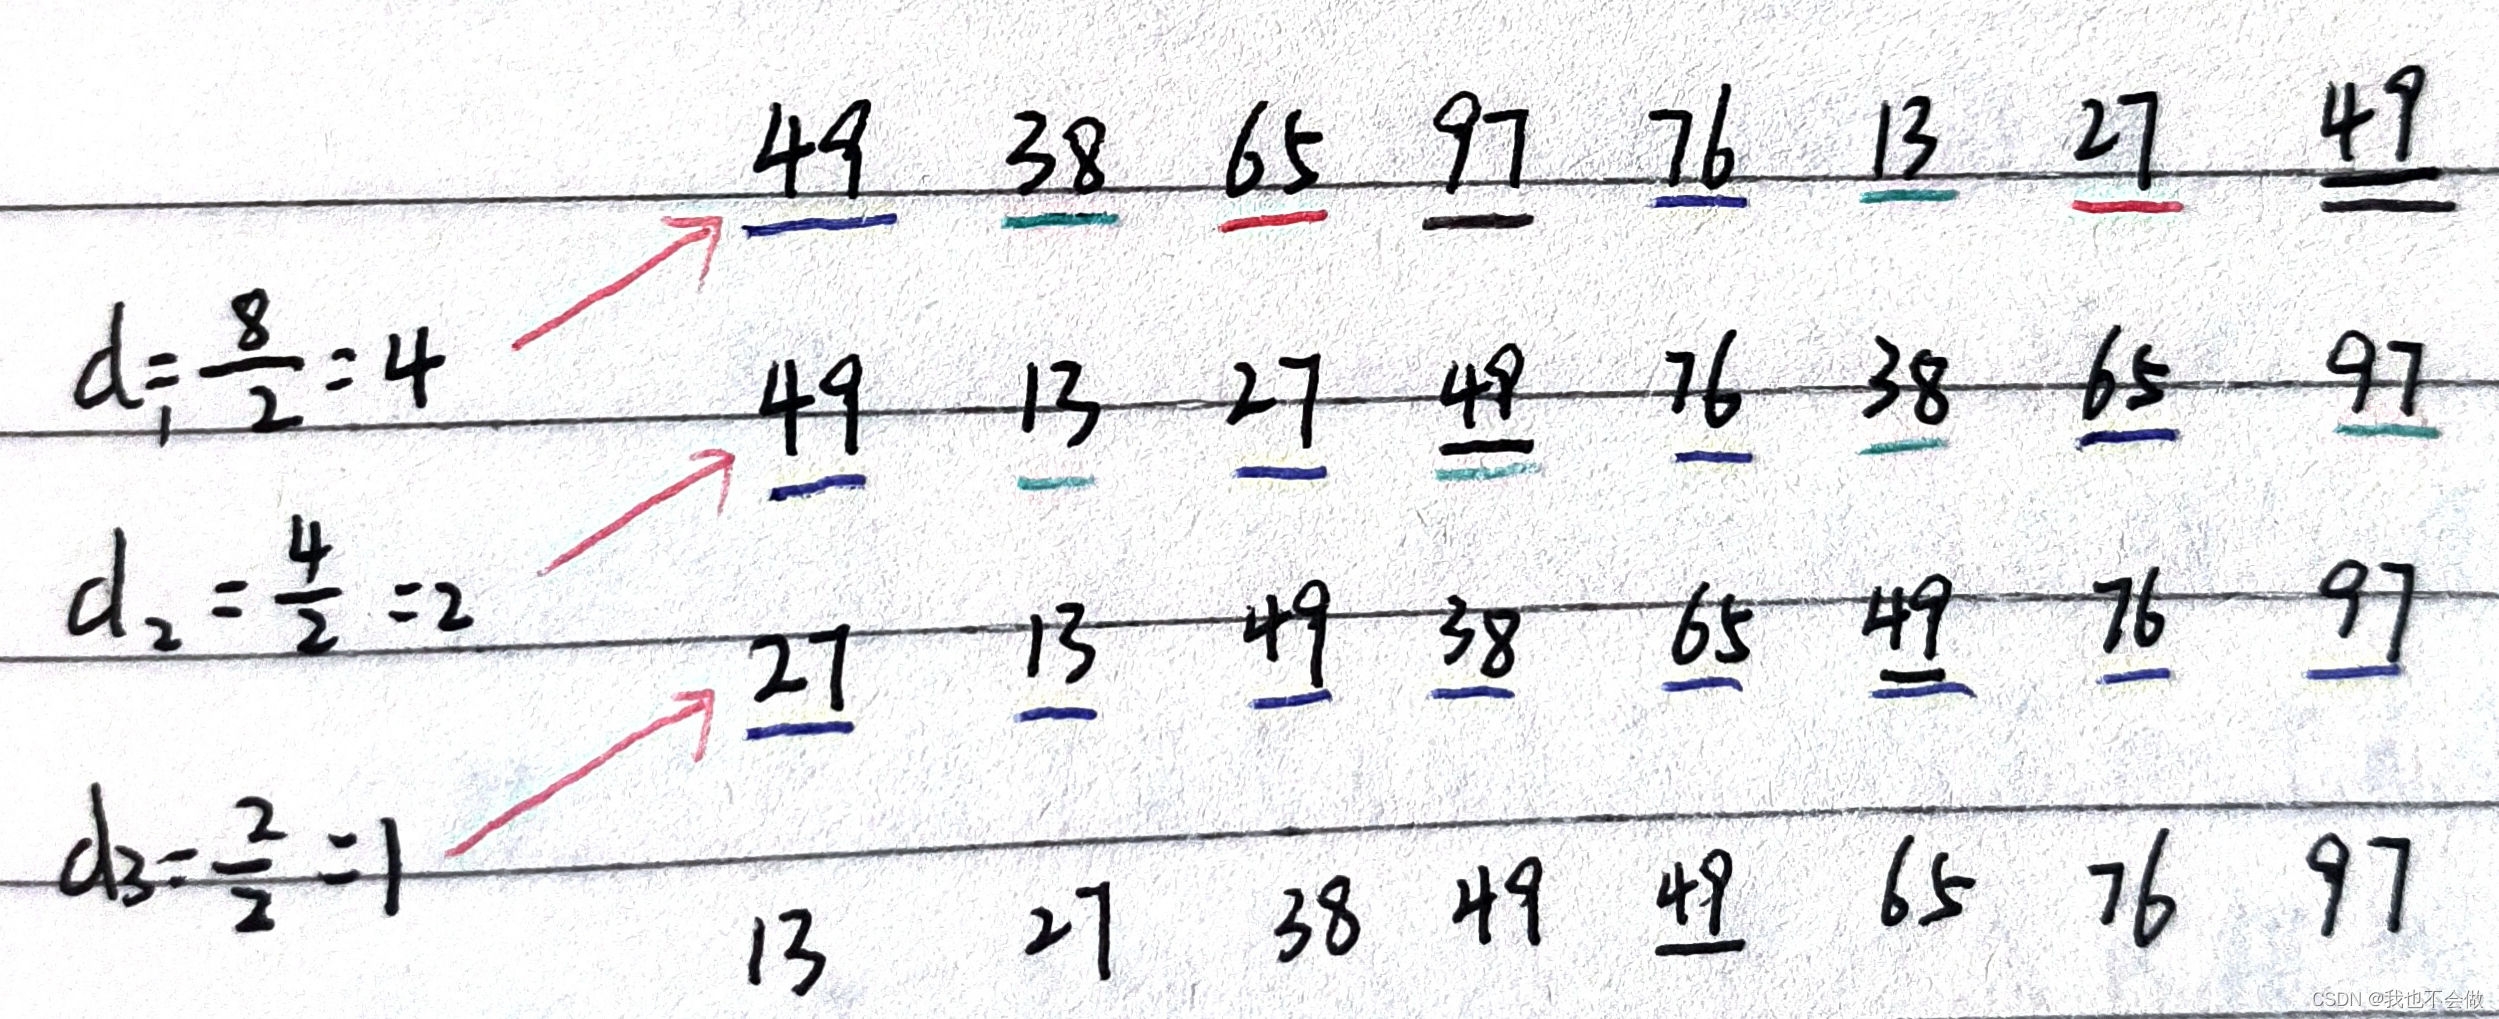 49 38 65 97 76 13 27 49
d₁=8/2=4
49 13 27 49 76 38 65 97
d₂=4/2=2
27 13 49 38 65 49 76 97
d3=2/2=1
13 27 38 49 49 65 76 97
CSDN @我也不会做